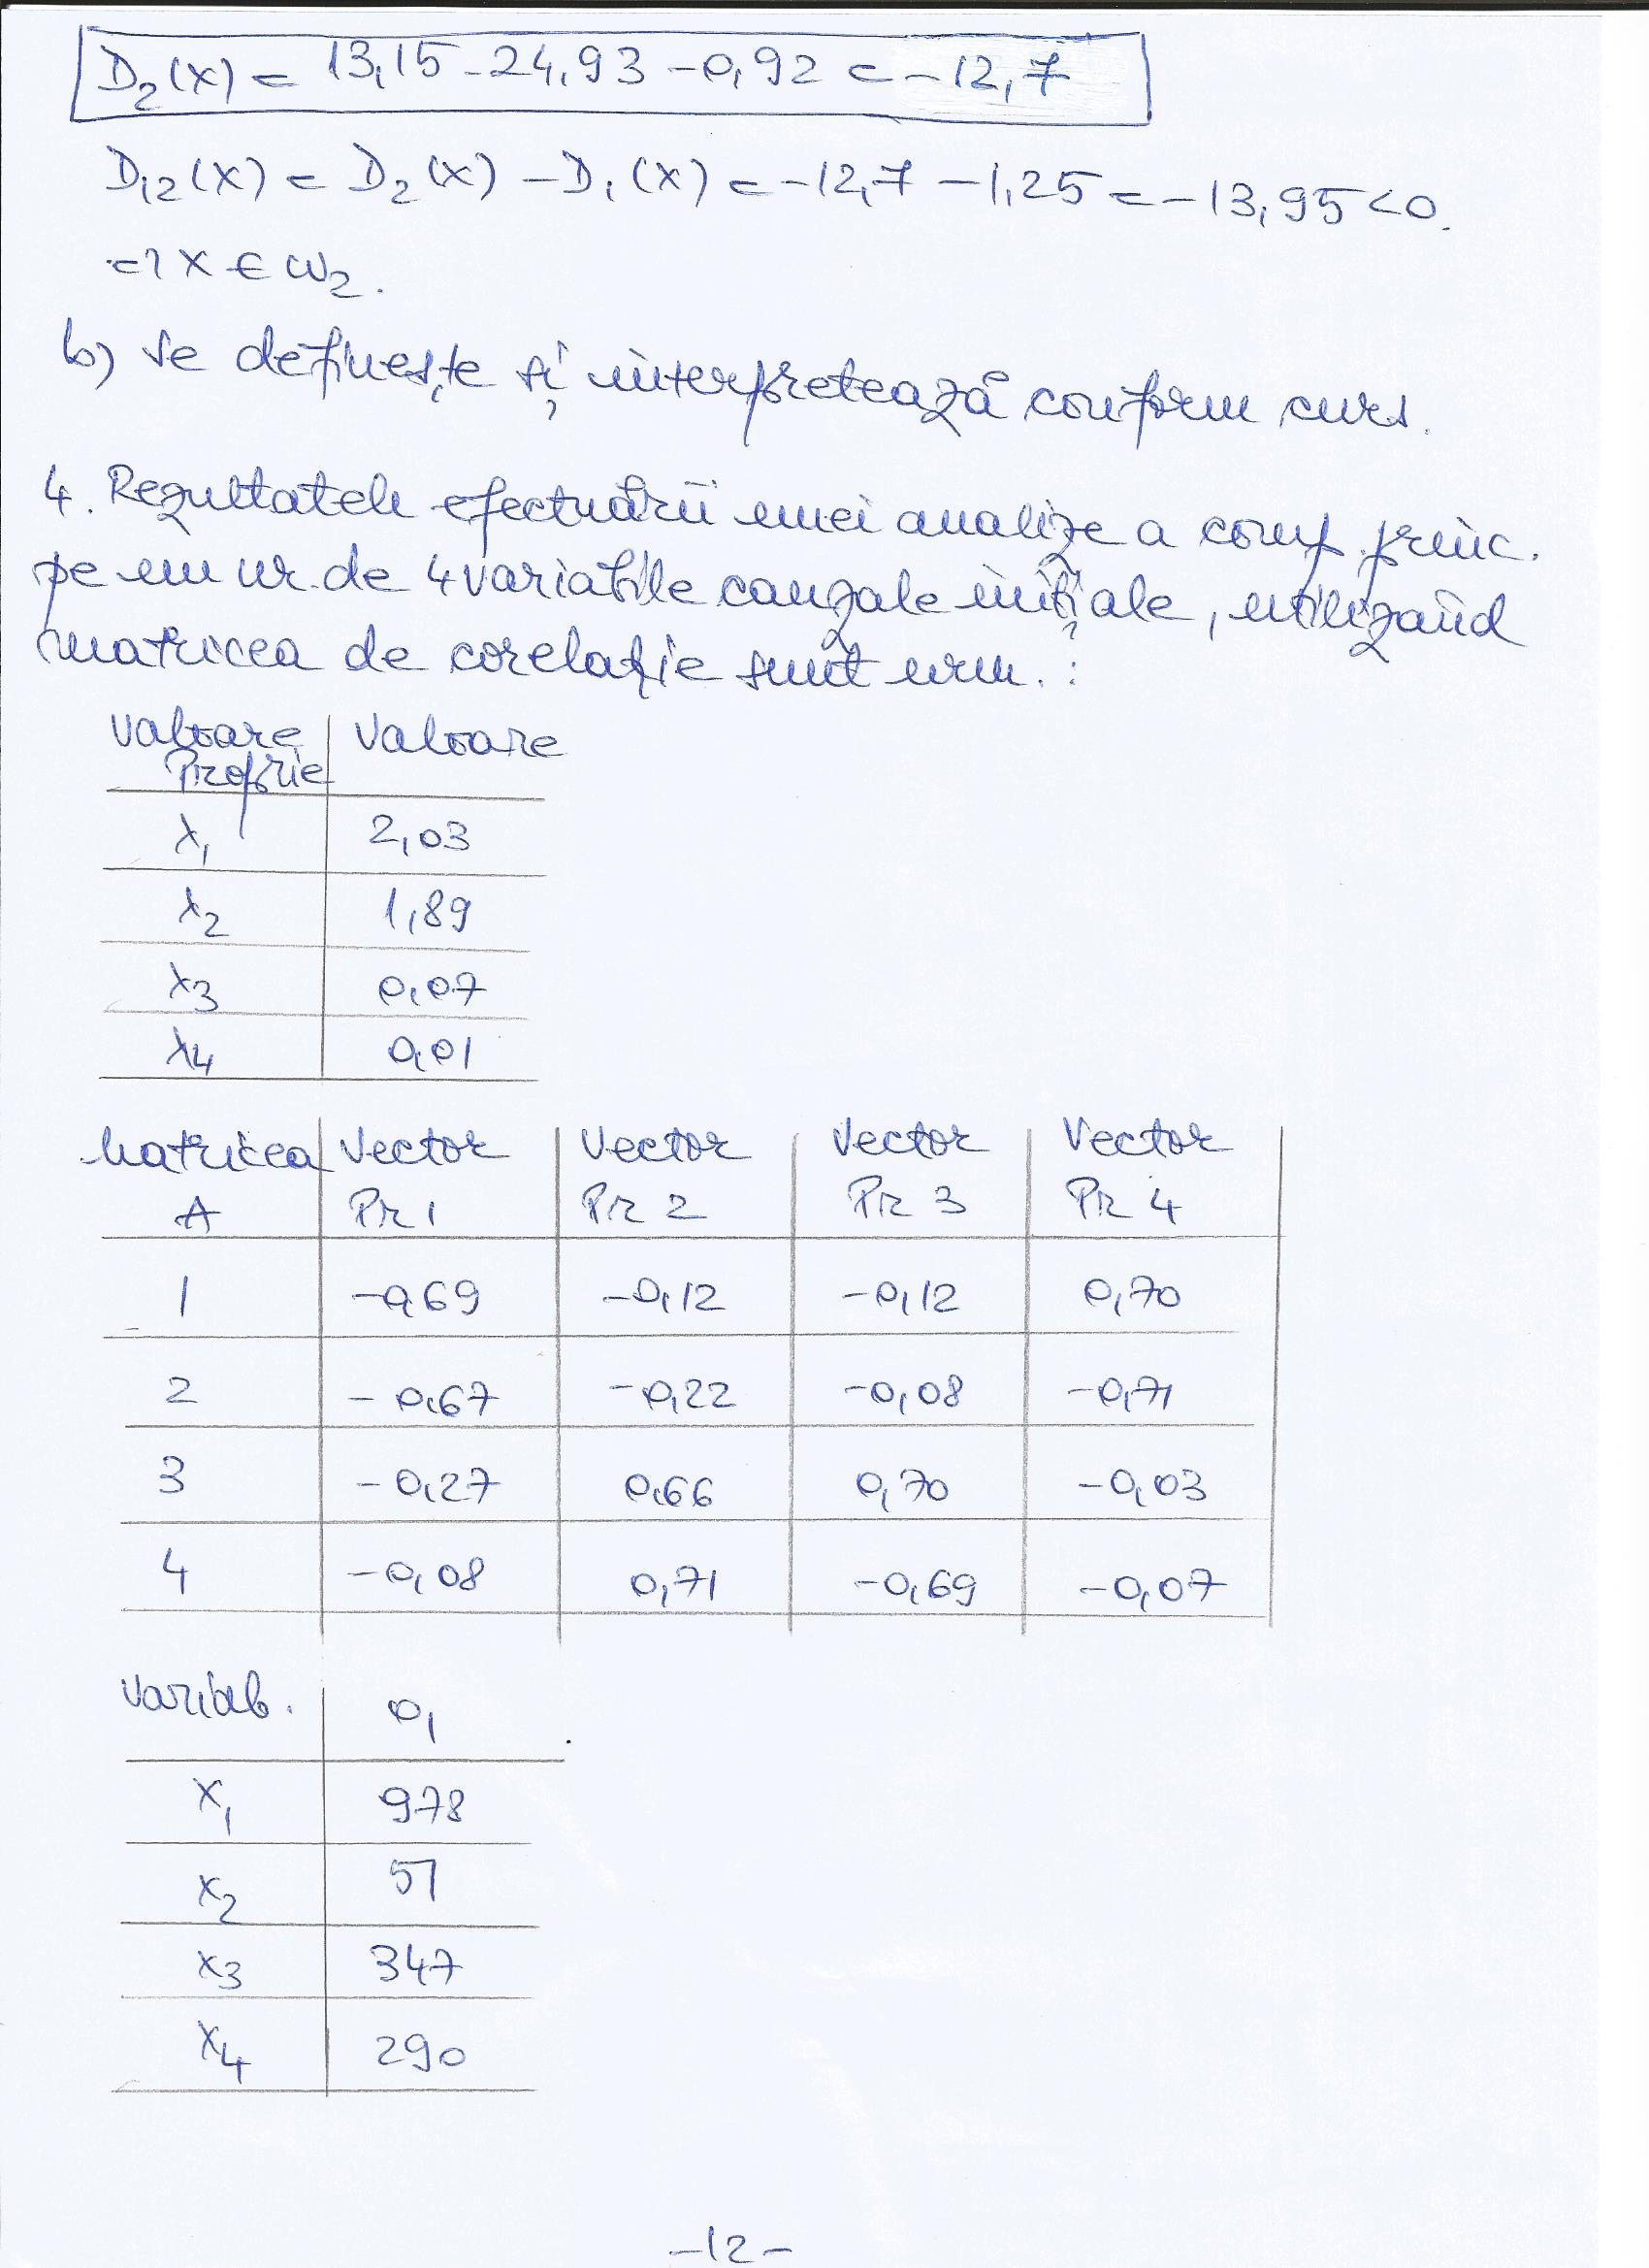 D₂(x) = 13,15 - 24,93 - 0,92 = -12,7
D₁₂(x) = D₂(x) - D₁(x) = -12,7 - 1,25 = -13,95 < 0.
=> x ∈ ω₂.
b) se definește și interpretează conform curs.
4. Rezultatele efectuării unei analize a comp. princ.
pe un nr. de 4 variabile cauzale inițiale, utilizând
matricea de corelație sunt urm. :
Valoare Proprie | Valoare
λ₁ | 2,03
λ₂ | 1,89
λ₃ | 0,07
λ₄ | 0,01
Matricea A | Vector Pr 1 | Vector Pr 2 | Vector Pr 3 | Vector Pr 4
1 | -0,69 | -0,12 | -0,12 | 0,70
2 | -0,67 | -0,22 | -0,08 | -0,71
3 | -0,27 | 0,66 | 0,70 | -0,03
4 | -0,08 | 0,71 | -0,69 | -0,07
Variab. | O₁
X₁ | 978
X₂ | 51
X₃ | 347
X₄ | 290
-12-